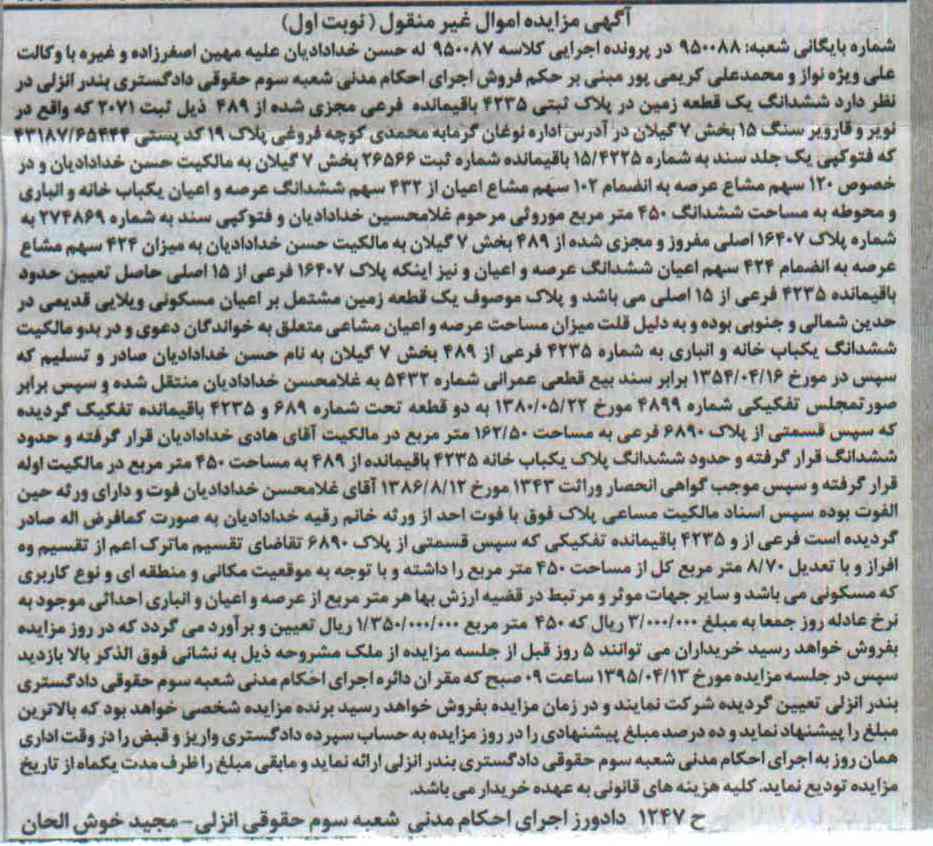 آگهی مزایده اموال غیر منقول (نوبت اول)
شماره بایگانی شعبه: ۹۵۰۰۸۸ در پرونده اجرایی کلاسه ۹۵۰۰۸۷ له حسن خدادادیان علیه مهین اصغرزاده و غیره با وکالت
علی ویژه نواز و محمدعلی کریمی پور مبنی بر حکم فروش اجرای احکام مدنی شعبه سوم حقوقی دادگستری بندر انزلی در
نظر دارد ششدانگ یک قطعه زمین در پلاک ثبتی ۴۲۳۵ باقیمانده فرعی مجزی شده از ۴۸۹ ذیل ثبت ۲۰۷۱ که واقع در
نویر و قارویر سنگ ۱۵ بخش ۷ گیلان در آدرس اداره نوغان گرمابه محمدی کوچه فروغی پلاک ۱۹ کد پستی ۴۳۱۸۷/۶۵۴۴۴
که فتوکپی یک جلد سند به شماره ۱۵/۴۲۲۵ باقیمانده شماره ثبت ۲۶۵۶۶ بخش ۷ گیلان به مالکیت حسن خدادادیان و در
خصوص ۱۲۰ سهم مشاع عرصه به انضمام ۱۰۲ سهم مشاع اعیان از ۴۳۲ سهم ششدانگ عرصه و اعیان یکباب خانه و انباری
و محوطه به مساحت ششدانگ ۴۵۰ متر مربع موروثی مرحوم غلامحسین خدادادیان و فتوکپی سند به شماره ۲۷۴۸۶۹ به
شماره پلاک ۱۶۴۰۷ اصلی مفروز و مجزی شده از ۴۸۹ بخش ۷ گیلان به مالکیت حسن خدادادیان به میزان ۴۲۴ سهم مشاع
عرصه به انضمام ۴۲۴ سهم اعیان ششدانگ عرصه و اعیان و نیز اینکه پلاک ۱۶۴۰۷ فرعی از ۱۵ اصلی حاصل تعیین حدود
باقیمانده ۴۲۳۵ فرعی از ۱۵ اصلی می باشد و پلاک موصوف یک قطعه زمین مشتمل بر اعیان مسکونی ویلایی قدیمی در
حدین شمالی و جنوبی بوده و به دلیل قلت میزان مساحت عرصه و اعیان مشاعی متعلق به خواندگان دعوی و در بدو مالکیت
ششدانگ یکباب خانه و انباری به شماره ۴۲۳۵ فرعی از ۴۸۹ بخش ۷ گیلان به نام حسن خدادادیان صادر و تسلیم که
سپس در مورخ ۱۳۵۴/۰۴/۱۶ برابر سند بیع قطعی عمرانی شماره ۵۴۳۲ به غلامحسن خدادادیان منتقل شده و سپس برابر
صورتمجلس تفکیکی شماره ۴۸۹۹ مورخ ۱۳۸۰/۰۵/۲۲ به دو قطعه تحت شماره ۶۸۹ و ۴۲۳۵ باقیمانده تفکیک گردیده
که سپس قسمتی از پلاک ۶۸۹۰ فرعی به مساحت ۱۶۲/۵۰ متر مربع در مالکیت آقای هادی خدادادیان قرار گرفته و حدود
ششدانگ قرار گرفته و حدود ششدانگ پلاک یکباب خانه ۴۲۳۵ باقیمانده از ۴۸۹ به مساحت ۴۵۰ متر مربع در مالکیت اوله
قرار گرفته و سپس موجب گواهی انحصار وراثت ۱۳۴۳ مورخ ۱۳۸۶/۸/۱۲ آقای غلامحسن خدادادیان فوت و دارای ورثه حین
الفوت بوده سپس اسناد مالکیت مساعی پلاک فوق با فوت احد از ورثه خانم رقیه خدادادیان به صورت کمافرض اله صادر
گردیده است فرعی از و ۴۲۳۵ باقیمانده تفکیکی که سپس قسمتی از پلاک ۶۸۹۰ تقاضای تقسیم ماترک اعم از تقسیم وه
افراز و با تعدیل ۸/۷۰ متر مربع کل از مساحت ۴۵۰ متر مربع را داشته و با توجه به موقعیت مکانی و منطقه ای و نوع کاربری
که مسکونی می باشد و سایر جهات موثر و مرتبط در قضیه ارزش بها هر متر مربع از عرصه و اعیان و انباری احداثی موجود به
نرخ عادله روز جمعا به مبلغ ۳/۰۰۰/۰۰۰ ریال که ۴۵۰ متر مربع ۱/۳۵۰/۰۰۰/۰۰۰ ریال تعیین و برآورد می گردد که در روز مزایده
بفروش خواهد رسید خریداران می توانند ۵ روز قبل از جلسه مزایده از ملک مشروحه ذیل به نشانی فوق الذکر بالا بازدید
سپس در جلسه مزایده مورخ ۱۳۹۵/۰۴/۱۳ ساعت ۰۹ صبح که مقر ان دائره اجرای احکام مدنی شعبه سوم حقوقی دادگستری
بندر انزلی تعیین گردیده شرکت نمایند و در زمان مزایده بفروش خواهد رسید برنده مزایده شخصی خواهد بود که بالاترین
مبلغ را پیشنهاد نماید و ده درصد مبلغ پیشنهادی را در روز مزایده به حساب سپرده دادگستری واریز و قبض را در وقت اداری
همان روز به اجرای احکام مدنی شعبه سوم حقوقی دادگستری بندر انزلی ارائه نماید و مابقی مبلغ را ظرف مدت یکماه از تاریخ
مزایده تودیع نماید. کلیه هزینه های قانونی به عهده خریدار می باشد.
ح ۱۲۴۷ دادورز اجرای احکام مدنی شعبه سوم حقوقی انزلی - مجید خوش الحان